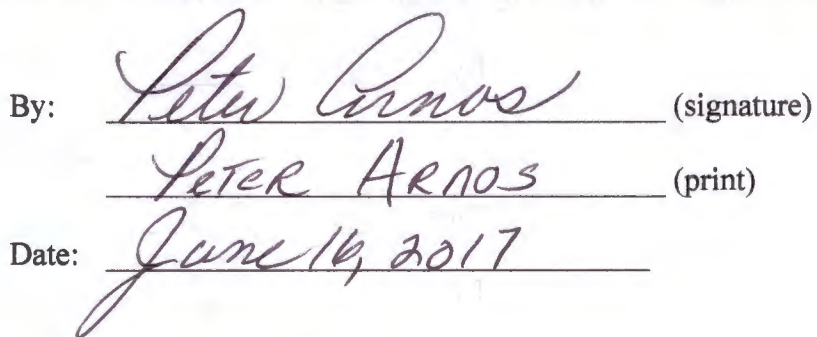 By: Peter Arnos (signature)
Peter Arnos (print)
Date: June 16, 2017